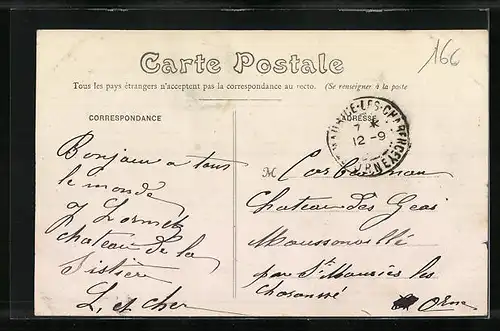 166
Carte Postale
Tous les pays étrangers n'acceptent pas la correspondance au recto. (Se renseigner à la poste
CORRESPONDANCE
ADRESSE
7 *
12-9
ORNE
Bonjour a tous
le monde
chateau de la
L. et cher
M
Chateau des Geai
Moussonvillé
par St Maurice les
Orne